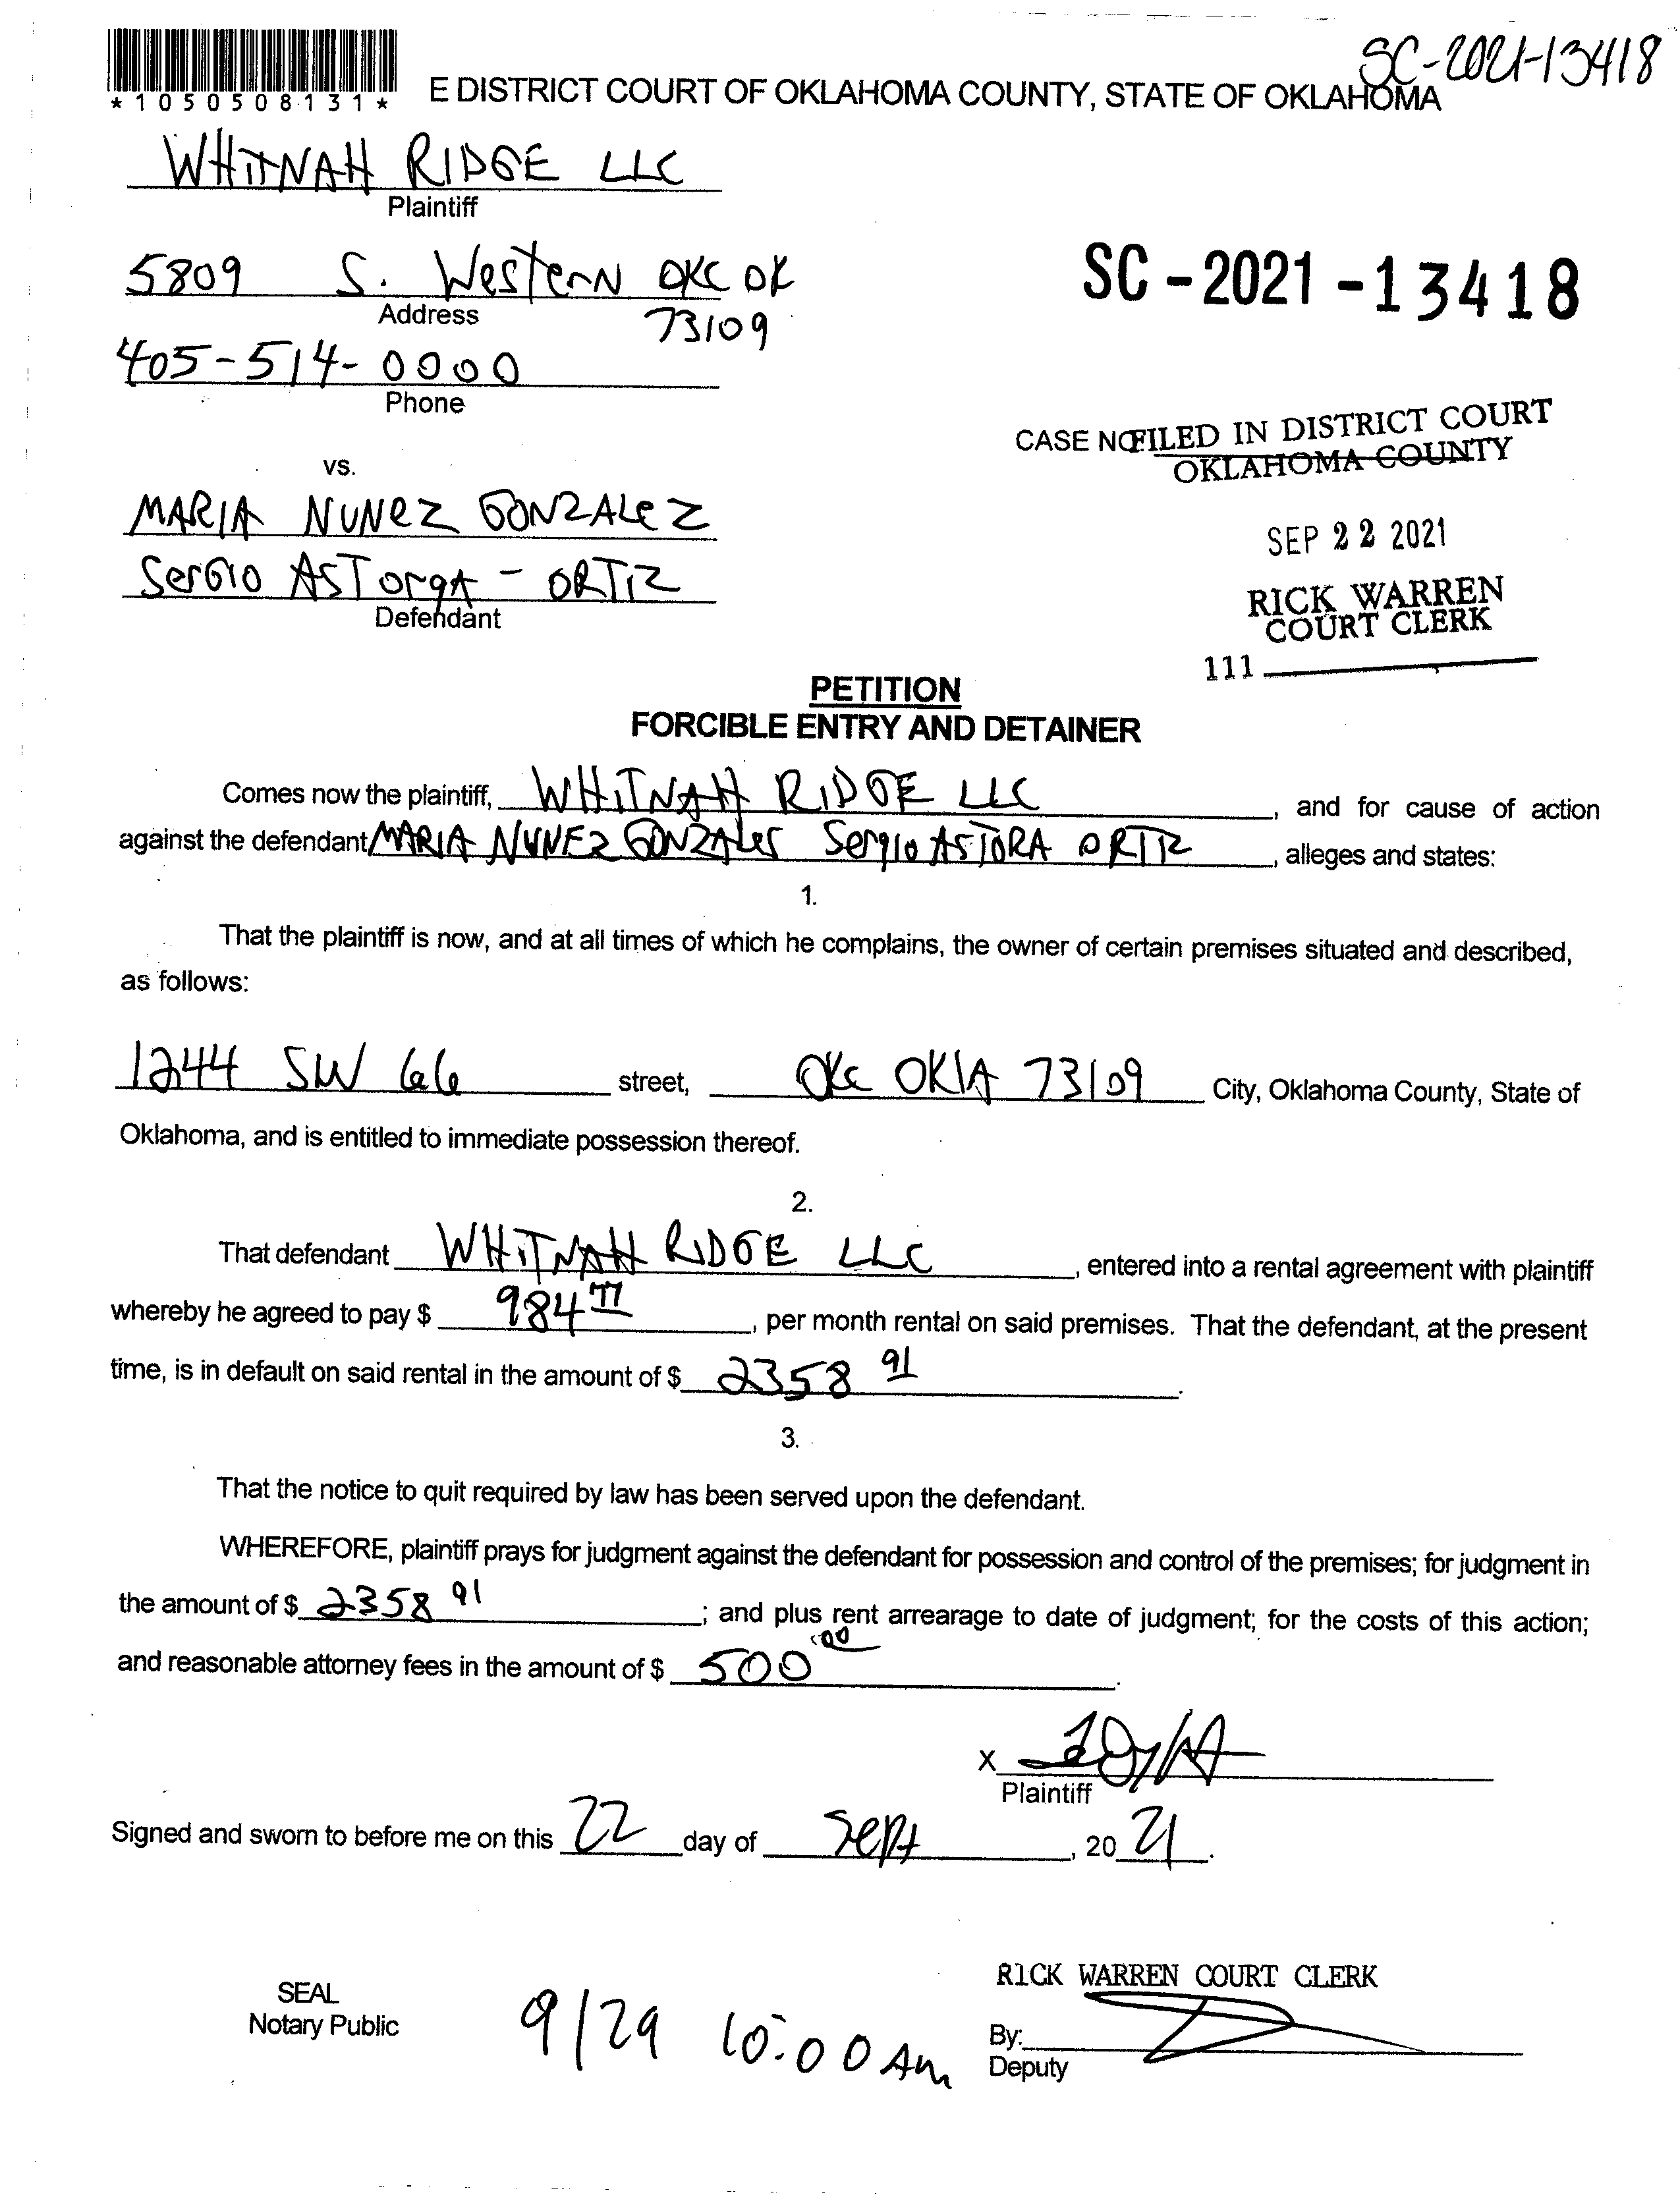 SC-2021-13418
*1050508131*
E DISTRICT COURT OF OKLAHOMA COUNTY, STATE OF OKLAHOMA
WHITNAH RIDGE LLC
Plaintiff
5809 S. Western OKC OK
Address
73109
SC-2021-13418
405-514-0000
Phone
CASE NO FILED IN DISTRICT COURT
OKLAHOMA COUNTY
vs.
MARIA NUNEZ GONZALEZ
SEP 22 2021
Sergio ASTorgA - ORTIZ
Defendant
RICK WARREN
COURT CLERK
111
PETITION
FORCIBLE ENTRY AND DETAINER
Comes now the plaintiff, WHITNAH RIDGE LLC, and for cause of action
against the defendant MARIA NUNEZ GONZALES Sergio ASTORA ORTIZ, alleges and states:
1.
That the plaintiff is now, and at all times of which he complains, the owner of certain premises situated and described,
as follows:
1244 SW 66 street, OKC OKlA 73109 City, Oklahoma County, State of
Oklahoma, and is entitled to immediate possession thereof.
2.
That defendant WHITNAH RIDGE LLC, entered into a rental agreement with plaintiff
whereby he agreed to pay $ 984 77, per month rental on said premises. That the defendant, at the present
time, is in default on said rental in the amount of $ 2358 91.
3.
That the notice to quit required by law has been served upon the defendant.
WHEREFORE, plaintiff prays for judgment against the defendant for possession and control of the premises; for judgment in
the amount of $ 2358 91; and plus rent arrearage to date of judgment; for the costs of this action;
and reasonable attorney fees in the amount of $ 500 00.
X
Plaintiff
Signed and sworn to before me on this 22 day of Sept, 20 21.
RICK WARREN COURT CLERK
SEAL
Notary Public
9/29 10:00 Am
By:
Deputy